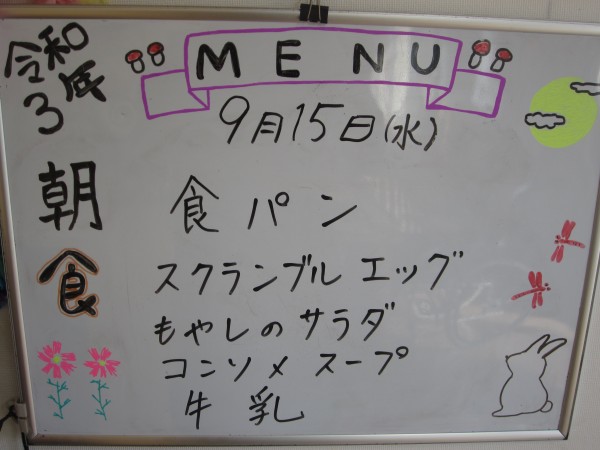 令和
3年
MENU
9月15日(水)
朝食
食パン
スクランブル エッグ
もやしのサラダ
コンソメ スープ
牛乳